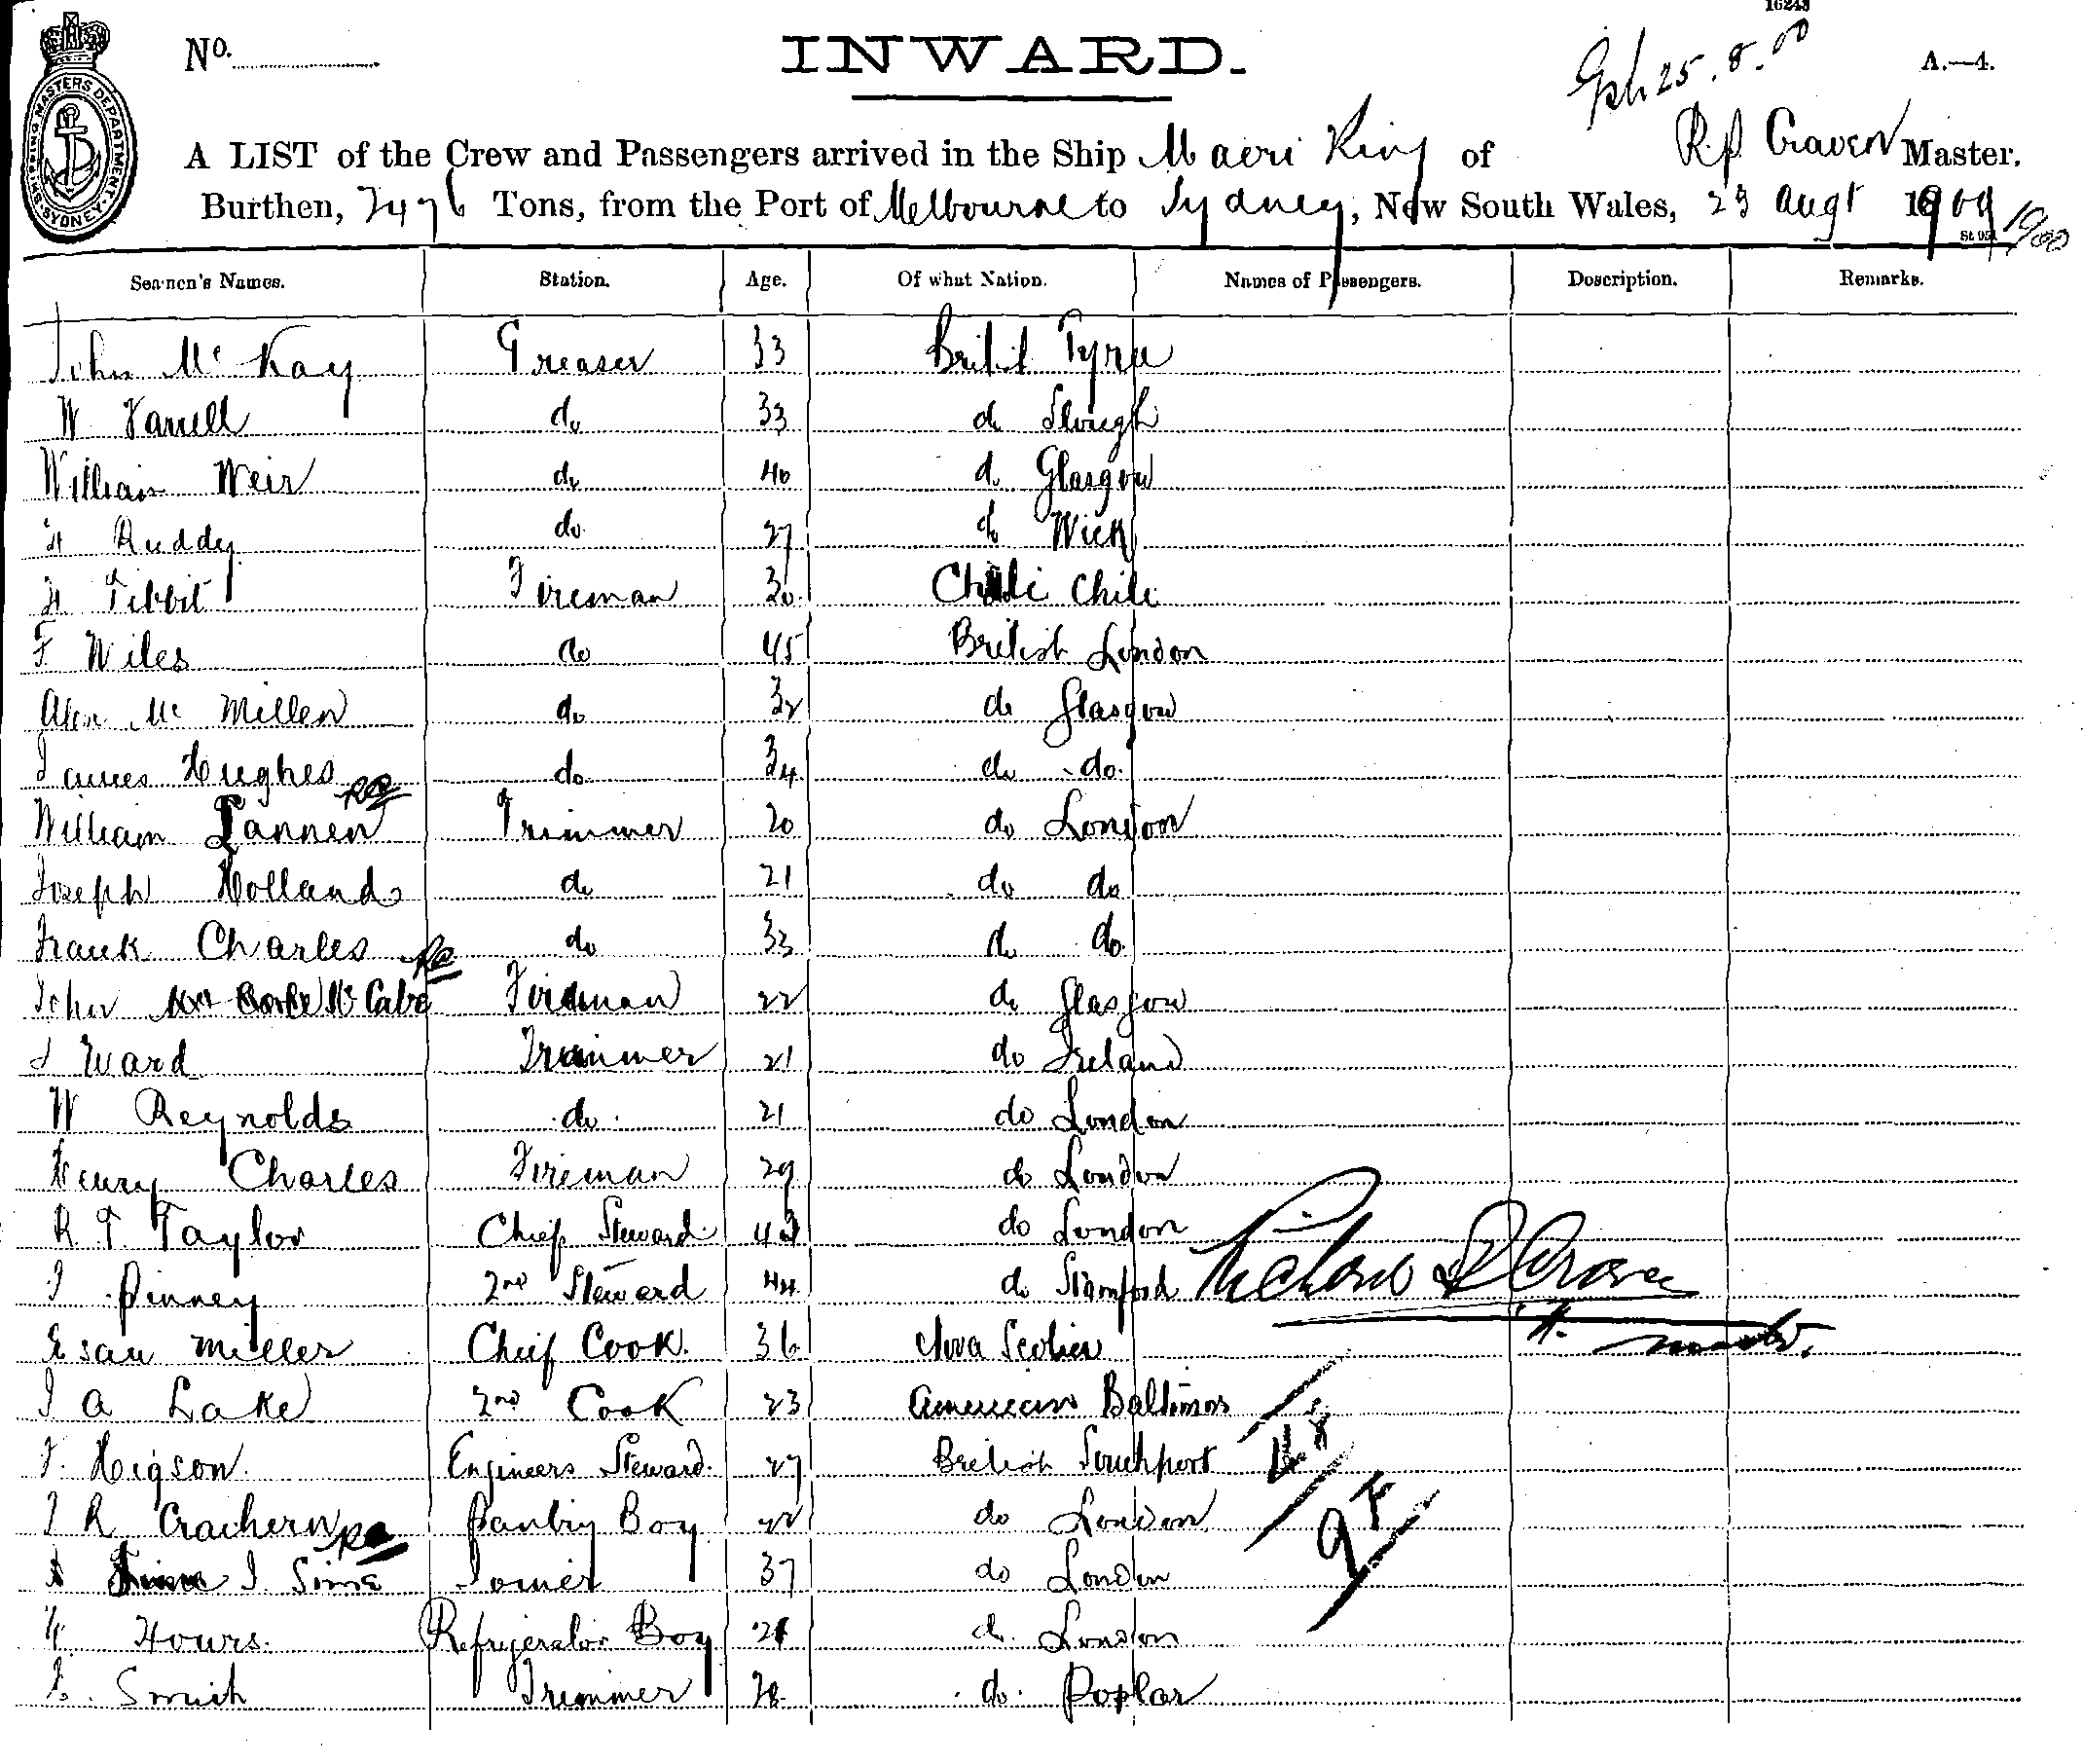 16243
No.
INWARD.
25.8.00
A.—4.
SHIPPING MASTERS DEPARTMENT SYDNEY
A LIST of the Crew and Passengers arrived in the Ship Maori King of R.D. Craven Master.
Burthen, 2476 Tons, from the Port of Melbourne to Sydney, New South Wales, 23 Augt 1900
Seamen's Names. Station. Age. Of what Nation. Names of Passengers. Description. Remarks.
John Mc Kay Greaser 33 British
W Farrell do 33 do Slough
William Weir do 40 do Glasgow
Ruddy do 27 do Wick
Tibbit Fireman 30 Chili Chile
F Wiles do 45 British London
Alex Mc Millen do 32 do Glasgow
James Hughes do 34 do do
William Lannen Trimmer 20 do London
Joseph Hollands do 21 do do
Frank Charles do 33 do do
John Mc Cabe Fireman 22 do Glasgow
J Ward Trimmer 21 do Ireland
W Reynolds do 21 do London
Henry Charles Fireman 29 do London
R T Taylor Chief Steward do London
J Pinney 2nd Steward 44 do Stamford Richard D Craven
Esau Miller Chief Cook 36 Nova Scotia Master.
J A Lake 2nd Cook 23 American Baltimore
J. Higson Engineers Steward 27 British Southport
J R Crachern Pantry Boy 22 do London
J Sims Joiner 37 do London
Hours. Refrigerator Boy do London
Smith Trimmer do Poplar